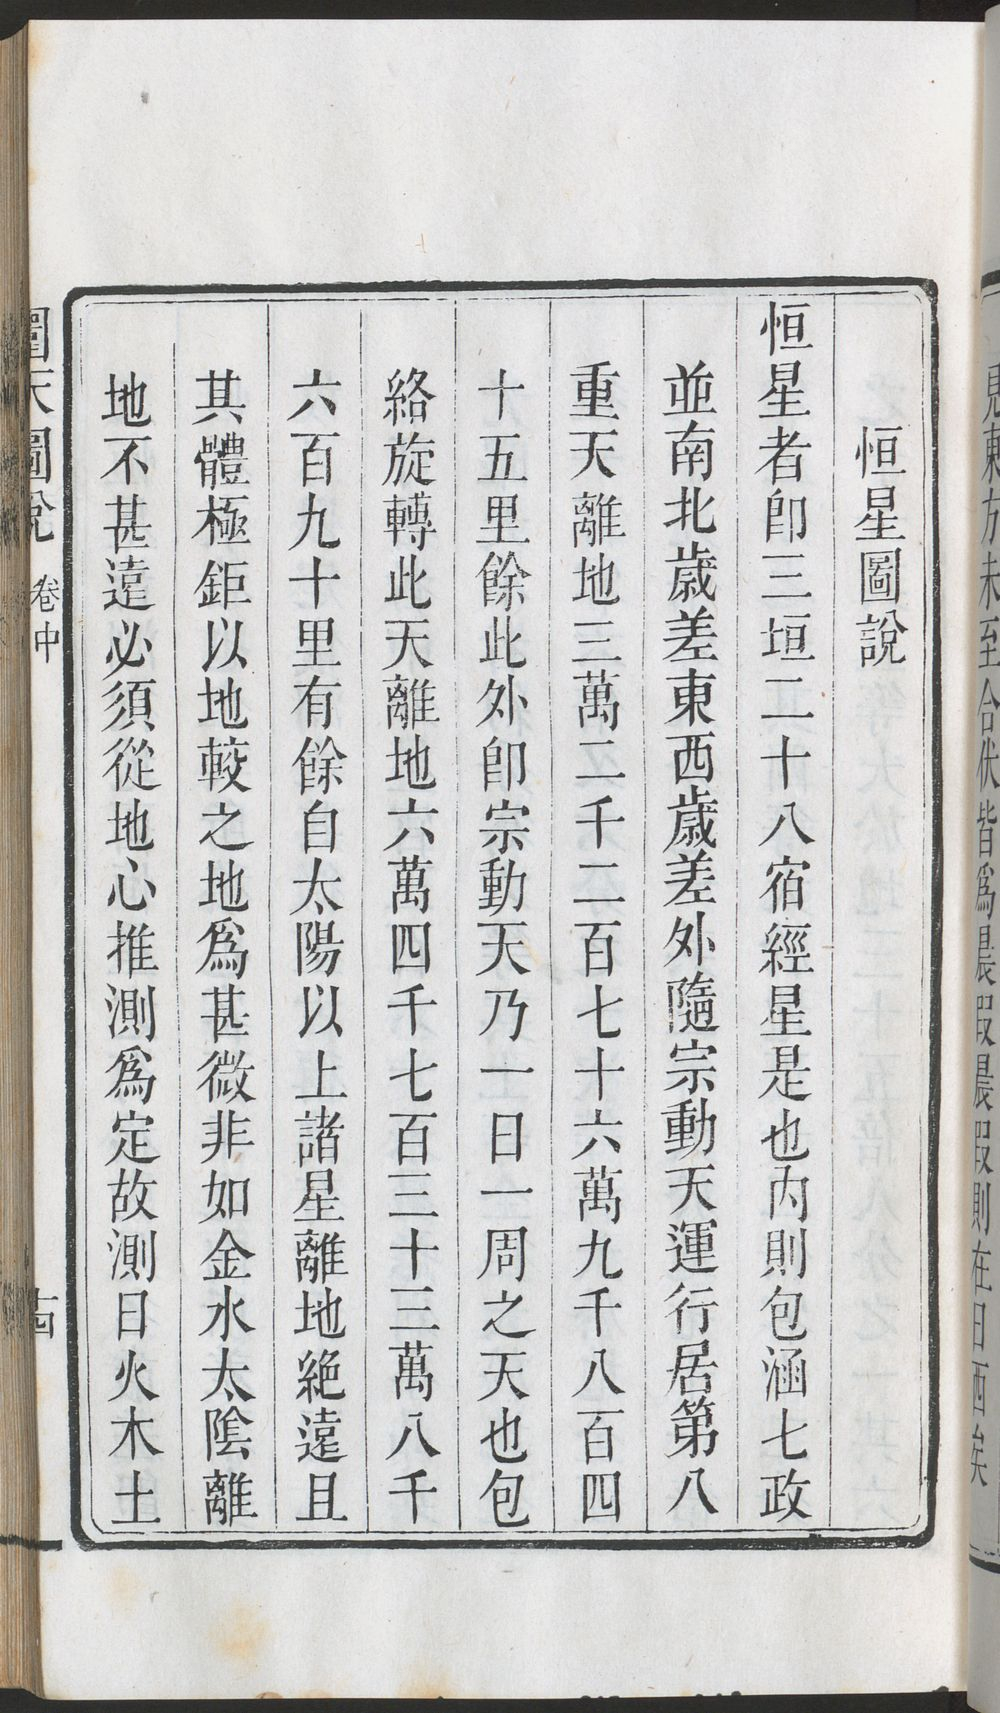 恒星圖說
恒星者卽三垣二十八宿經星是也內則包涵七政
並南北歲差東西歲差外隨宗動天運行居第八
重天離地三萬二千二百七十六萬九千八百四
十五里餘此外卽宗動天乃一日一周之天也包
絡旋轉此天離地六萬四千七百三十三萬八千
六百九十里有餘自太陽以上諸星離地絕遠且
其體極鉅以地較之地爲甚微非如金水太陰離
地不甚遠必須從地心推測爲定故測日火木土
圜天圖說 卷中 十四